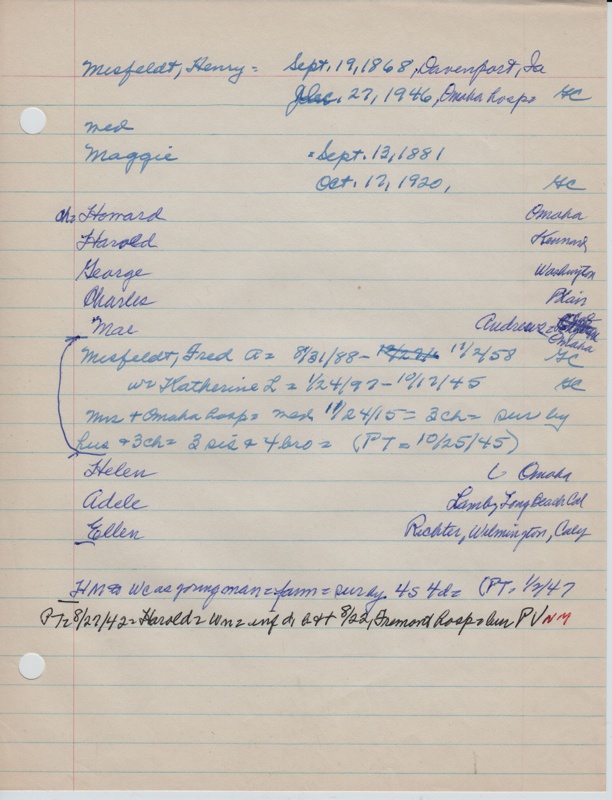 Misfeldt, Henry = Sept. 19, 1868, Davenport, Ia
Dec. 27, 1946, Omaha hosp= GC
med
Maggie = Sept. 13, 1881
Oct. 17, 1920, GC
ch= Howard Omaha
Harold Kennard
George Washington
Charles Blair
Mae Andrews = Omaha
Misfeldt, Fred A = 8/31/88 - 11/2/58 GC
w = Katherine L = 1/24/97 - 10/17/45 GC
Mrs + Omaha hosp = med 11/24/15 = 3ch = sur by
hus + 3ch = 3 sis + 4 bro = (PT = 10/25/45)
Helen Omaha
Adele Lamby Long Beach Cal
Ellen Richter, Wilmington, Caly
HM = WC as young man = farm = sur by 4s 4d = (PT. 1/2/47
PT = 8/27/42 = Harold = Wn = inf d, b + 8/22, Fremont hosp = bur P V NM